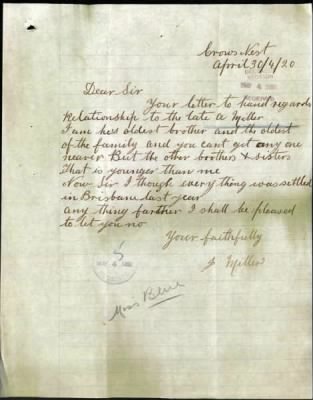 Crows Nest
April 30/4/20
MAY 4 1920
Dear Sir
Your letter to hand regards
Relationship to the late A Miller
I am hes oldest brother and the oldest
of the family and you cant get any one
nearer But the other brothers & sisters
That is younger than me
Now Sir I though every thing was settled
in Brisbane last year
any thing farther I shall be pleased
to let you no
Your faithfully
J Miller
MAY 4 1920
Miss Blue